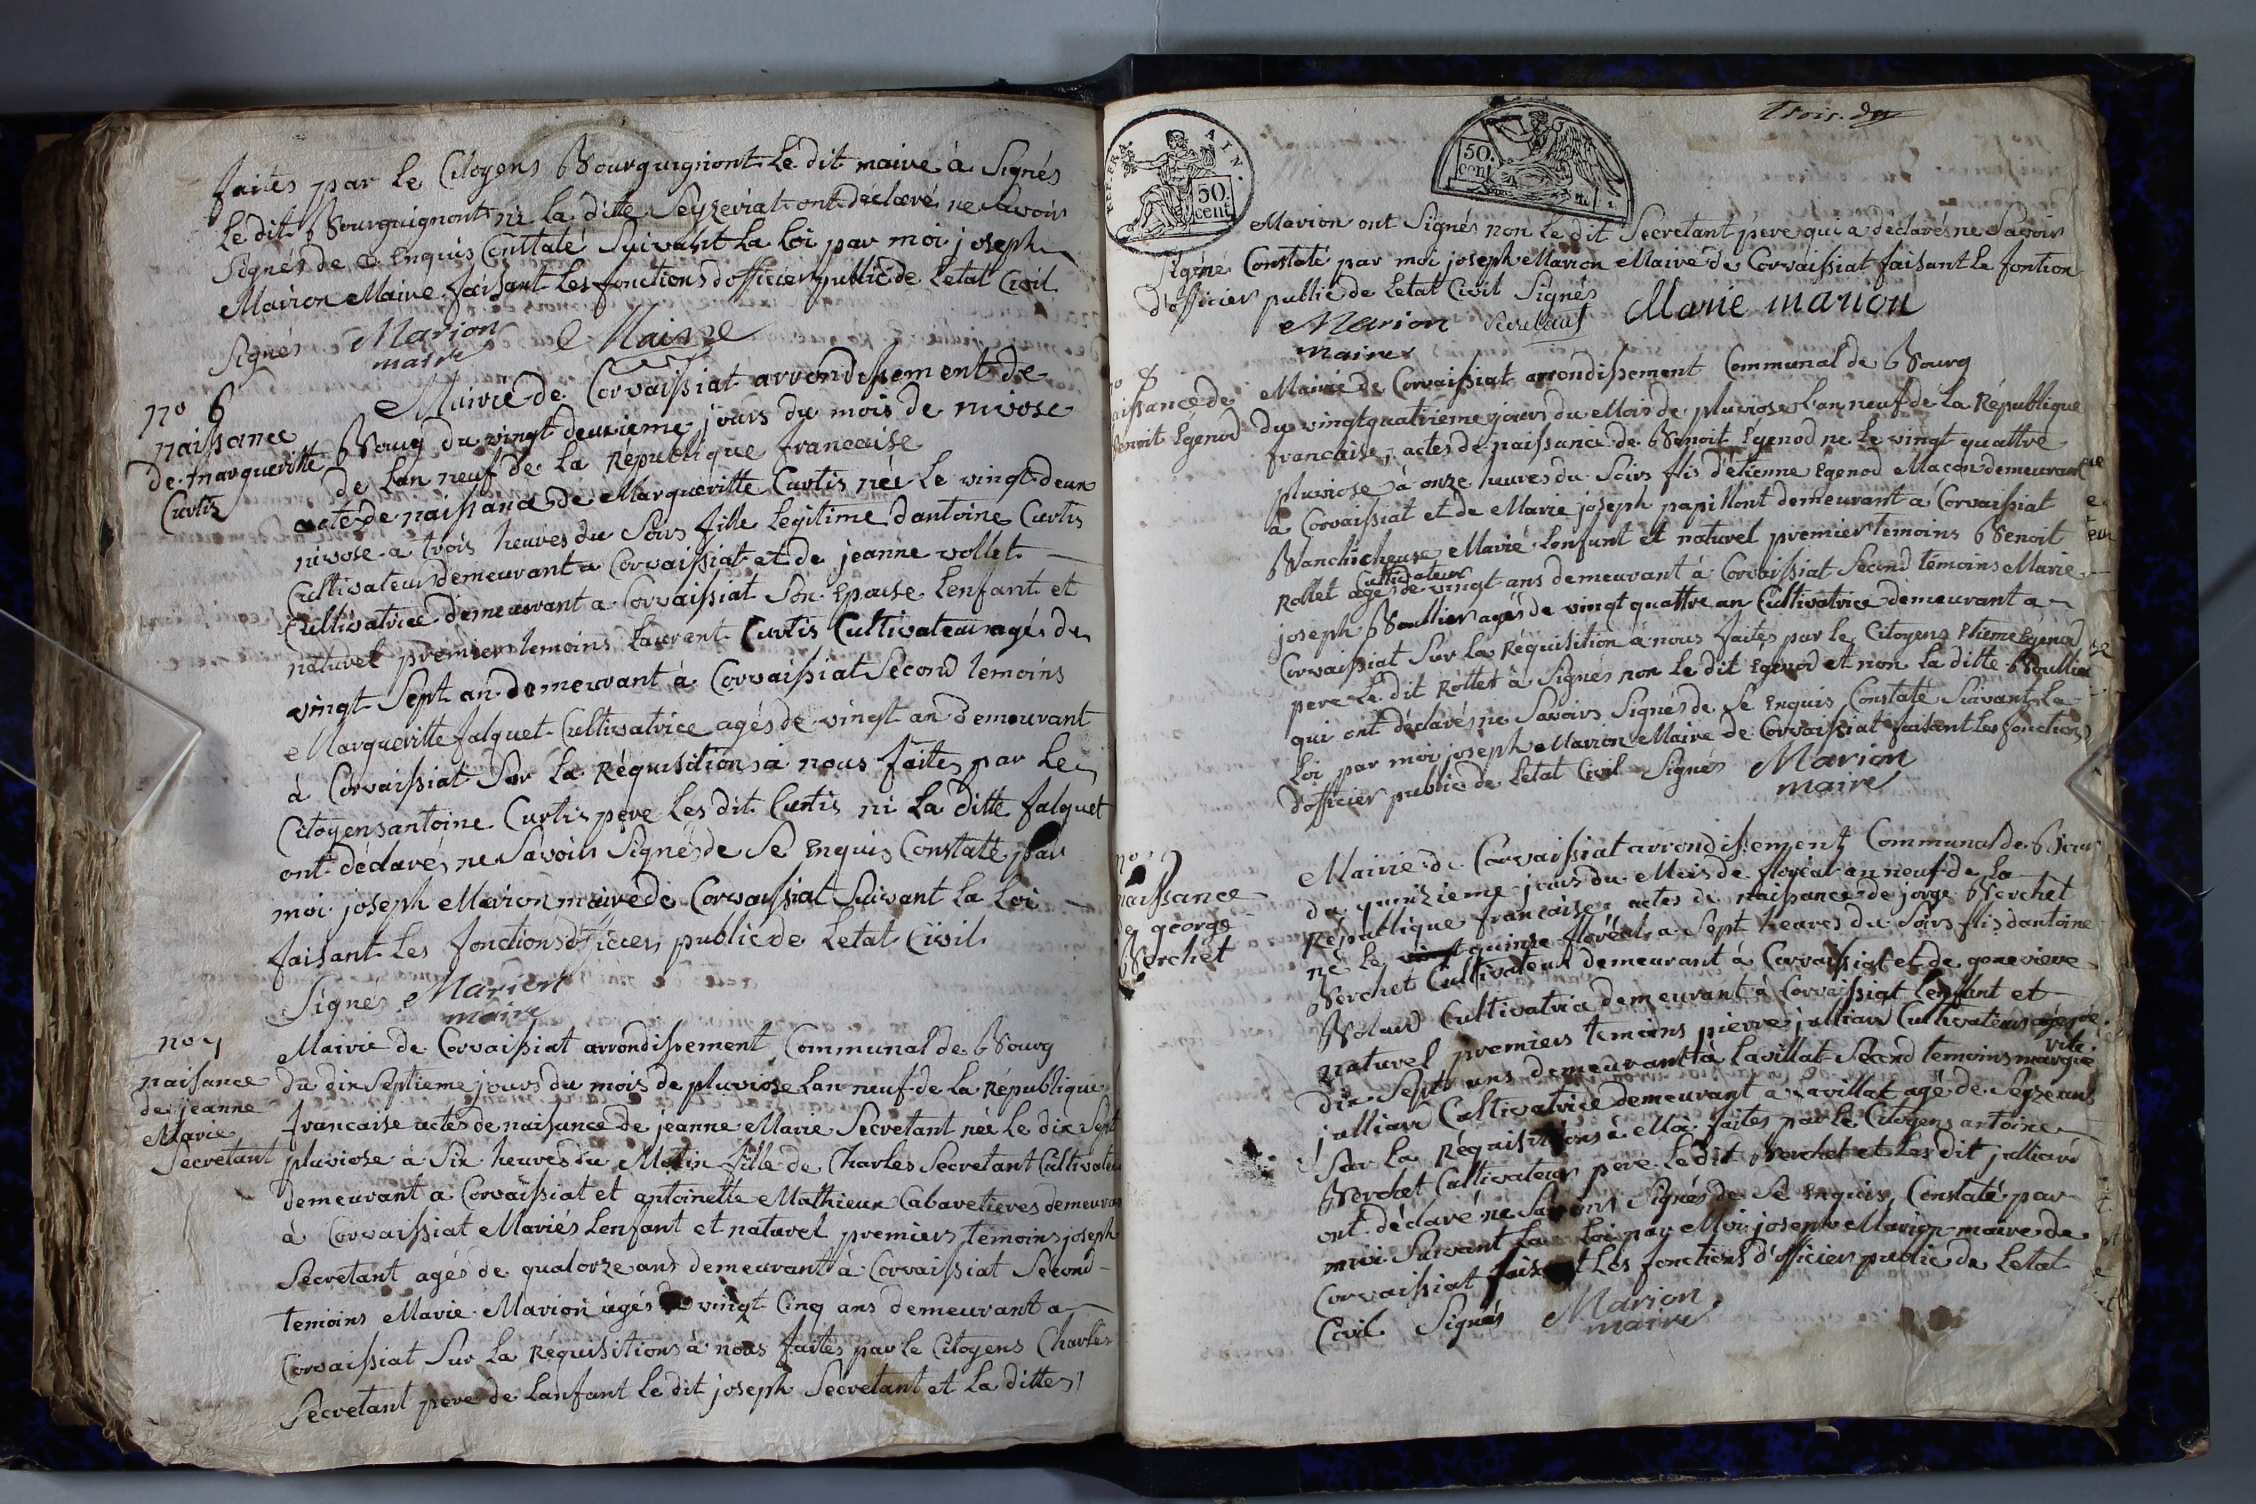 faites par le Citoyens Bourguignont le dit maire à Signés
le dit Bourguignont ni la ditte Seyzeriat ont déclaré ne Savoir
Signés de ce Enquis Conttaté Suivant la Loi par moi joseph
Marion Maire faisant les fonctions dofficier public de Letat Civil
Signés Marion Maire
maire
no 6
naissance
de margueritte
Curtis
Mairie de Corvaissiat arrondissement de
Bourg du vingt deuxieme jours du mois de nivose
de Lan neuf de la Republique francaise
acte de naissance de Margueritte Curtis née le vingt deux
nivose a trois heures du Soirs fille Legitime dantoine Curtis
Cultivateur demeurant a Corvaissiat et de jeanne vollet
Cultivatrice demeurant a Corvaissiat Son Epouse Lenfant et
naturel premier temoins Laurent Curtis Cultivateur agé de
vingt Sept an demeurant à Corvaissiat Second temoins
Margueritte falquet Cultivatrice agés de vingt an demeurant
à Corvaissiat Sur la Réquisitions à nous faites par le
Citoyens antoine Curtis pere Les dit Curtis ni la ditte falquet
ont déclarés ne Savoir Signés de Se Enquis Constaté par
moi joseph Marion maire de Corvaissiat Suivant la Loi
faisant les fonctions dofficier public de Letat Civil
Signés Marion
maire
no 7
naisance
de jeanne
Marie
Secretant
Mairie de Corvaissiat arrondissement Communal de Bourg
du dix Septieme jours du mois de pluviose Lan neuf de la République
francaise actes de naisance de jeanne Marie Secretant née le dix Sept
pluviose à Six heures du Matin fille de Charles Secretant Cultivateu
demeurant a Corvaissiat et antoinette Mathieux Cabaretieres demeuran
à Corvaissiat Mariés Lenfant et naturel premiers temoins joseph
Secretant agés de quatorze ans demeurant à Corvaissiat Second
temoins Marie Marion agés de vingt Cinq ans demeurant a
Corvaissiat Sur la Réquisitions à nous faites par le Citoyens Charles
Secretant pere de Lanfant le dit joseph Secretant et la dittes
REP. FRA. AIN.
50 cent
50. cent
Trois.
Marion ont Signés non le dit Secretant pere qui a déclarés ne Savoir
Signé Constaté par moi joseph Marion Maire de Corvaissiat faisant le fontion
d'officier public de Letat Civil Signés
Marion Marie marion
maire
no 8
aissance de
Benoit Egenod
Mairie de Corvaissiat arrondissement Communal de Bourg
du vingt quatrieme jours du Mois de pluviose Lan neuf de la Republique
francaise, actes de naissance de Benoit Egenod ne le vingt quattre
pluviose à onze heures du Soirs fils d'étienne Egenod Macon demeurant
a Corvaissiat et de Marie joseph papillont demeurant à Corvaissiat
Blanchicheuse Marié Lenfant et naturel premier temoins Benoit
Cultivateur
Rollet agés de vingt ans demeurant à Corvaissiat Second temoins Marie
joseph Boullier agés de vingt quattre an Cultivatrice demeurant a
Corvaissiat Sur la Réquisition à nous faites par le Citoyens Etienne Egenod
pere Le dit Rollet à Signés non le dit Egenod et non la ditte Boullier
qui ont déclarés ne Savoirs Signés de Se Enquis Constaté Suivant la
Loi par moi joseph Marion Maire de Corvaissiat faisant les fonctions
d'officier public de Letat Civil Signés Marion
maire
no
naissance
de george
Berchet
Mairie de Corvaissiat arrondissement Communal de Bour
du quinzieme jours du Mois de floréal an neuf de la
République francaise actes de naissance de jorge Berchet
né le quinze floréal a Sept heures du Soirs fils dantoine
Berchet Cultivateur demeurant à Corvaissiat et de genevieve
Cultivatrice demeurant à Corvaissiat Lenffant et
naturel premiers temoins pierre julliard Cultivateur agés de
dix Sept ans demeurant à Lavillat Second temoins margue
rite
julliard Cultivatrice demeurant a Lavillat agé de Seize ans
Sur la Réquisitions à Moi faites par le Citoyens antoine
Berchet Cultivateur pere le dit Berchet et les dit julliard
ont déclaré ne Savoirs Signés de Se Enquis Constaté par
moi Suivant la Loi par Moi joseph Marion maire de
Corvaissiat faisant les fonctions d'officier public de Letat
Civil Signés Marion
maire